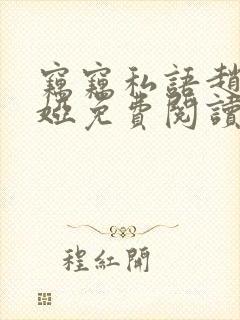 竊竊私語趙
婭免費閱讀
程紅開